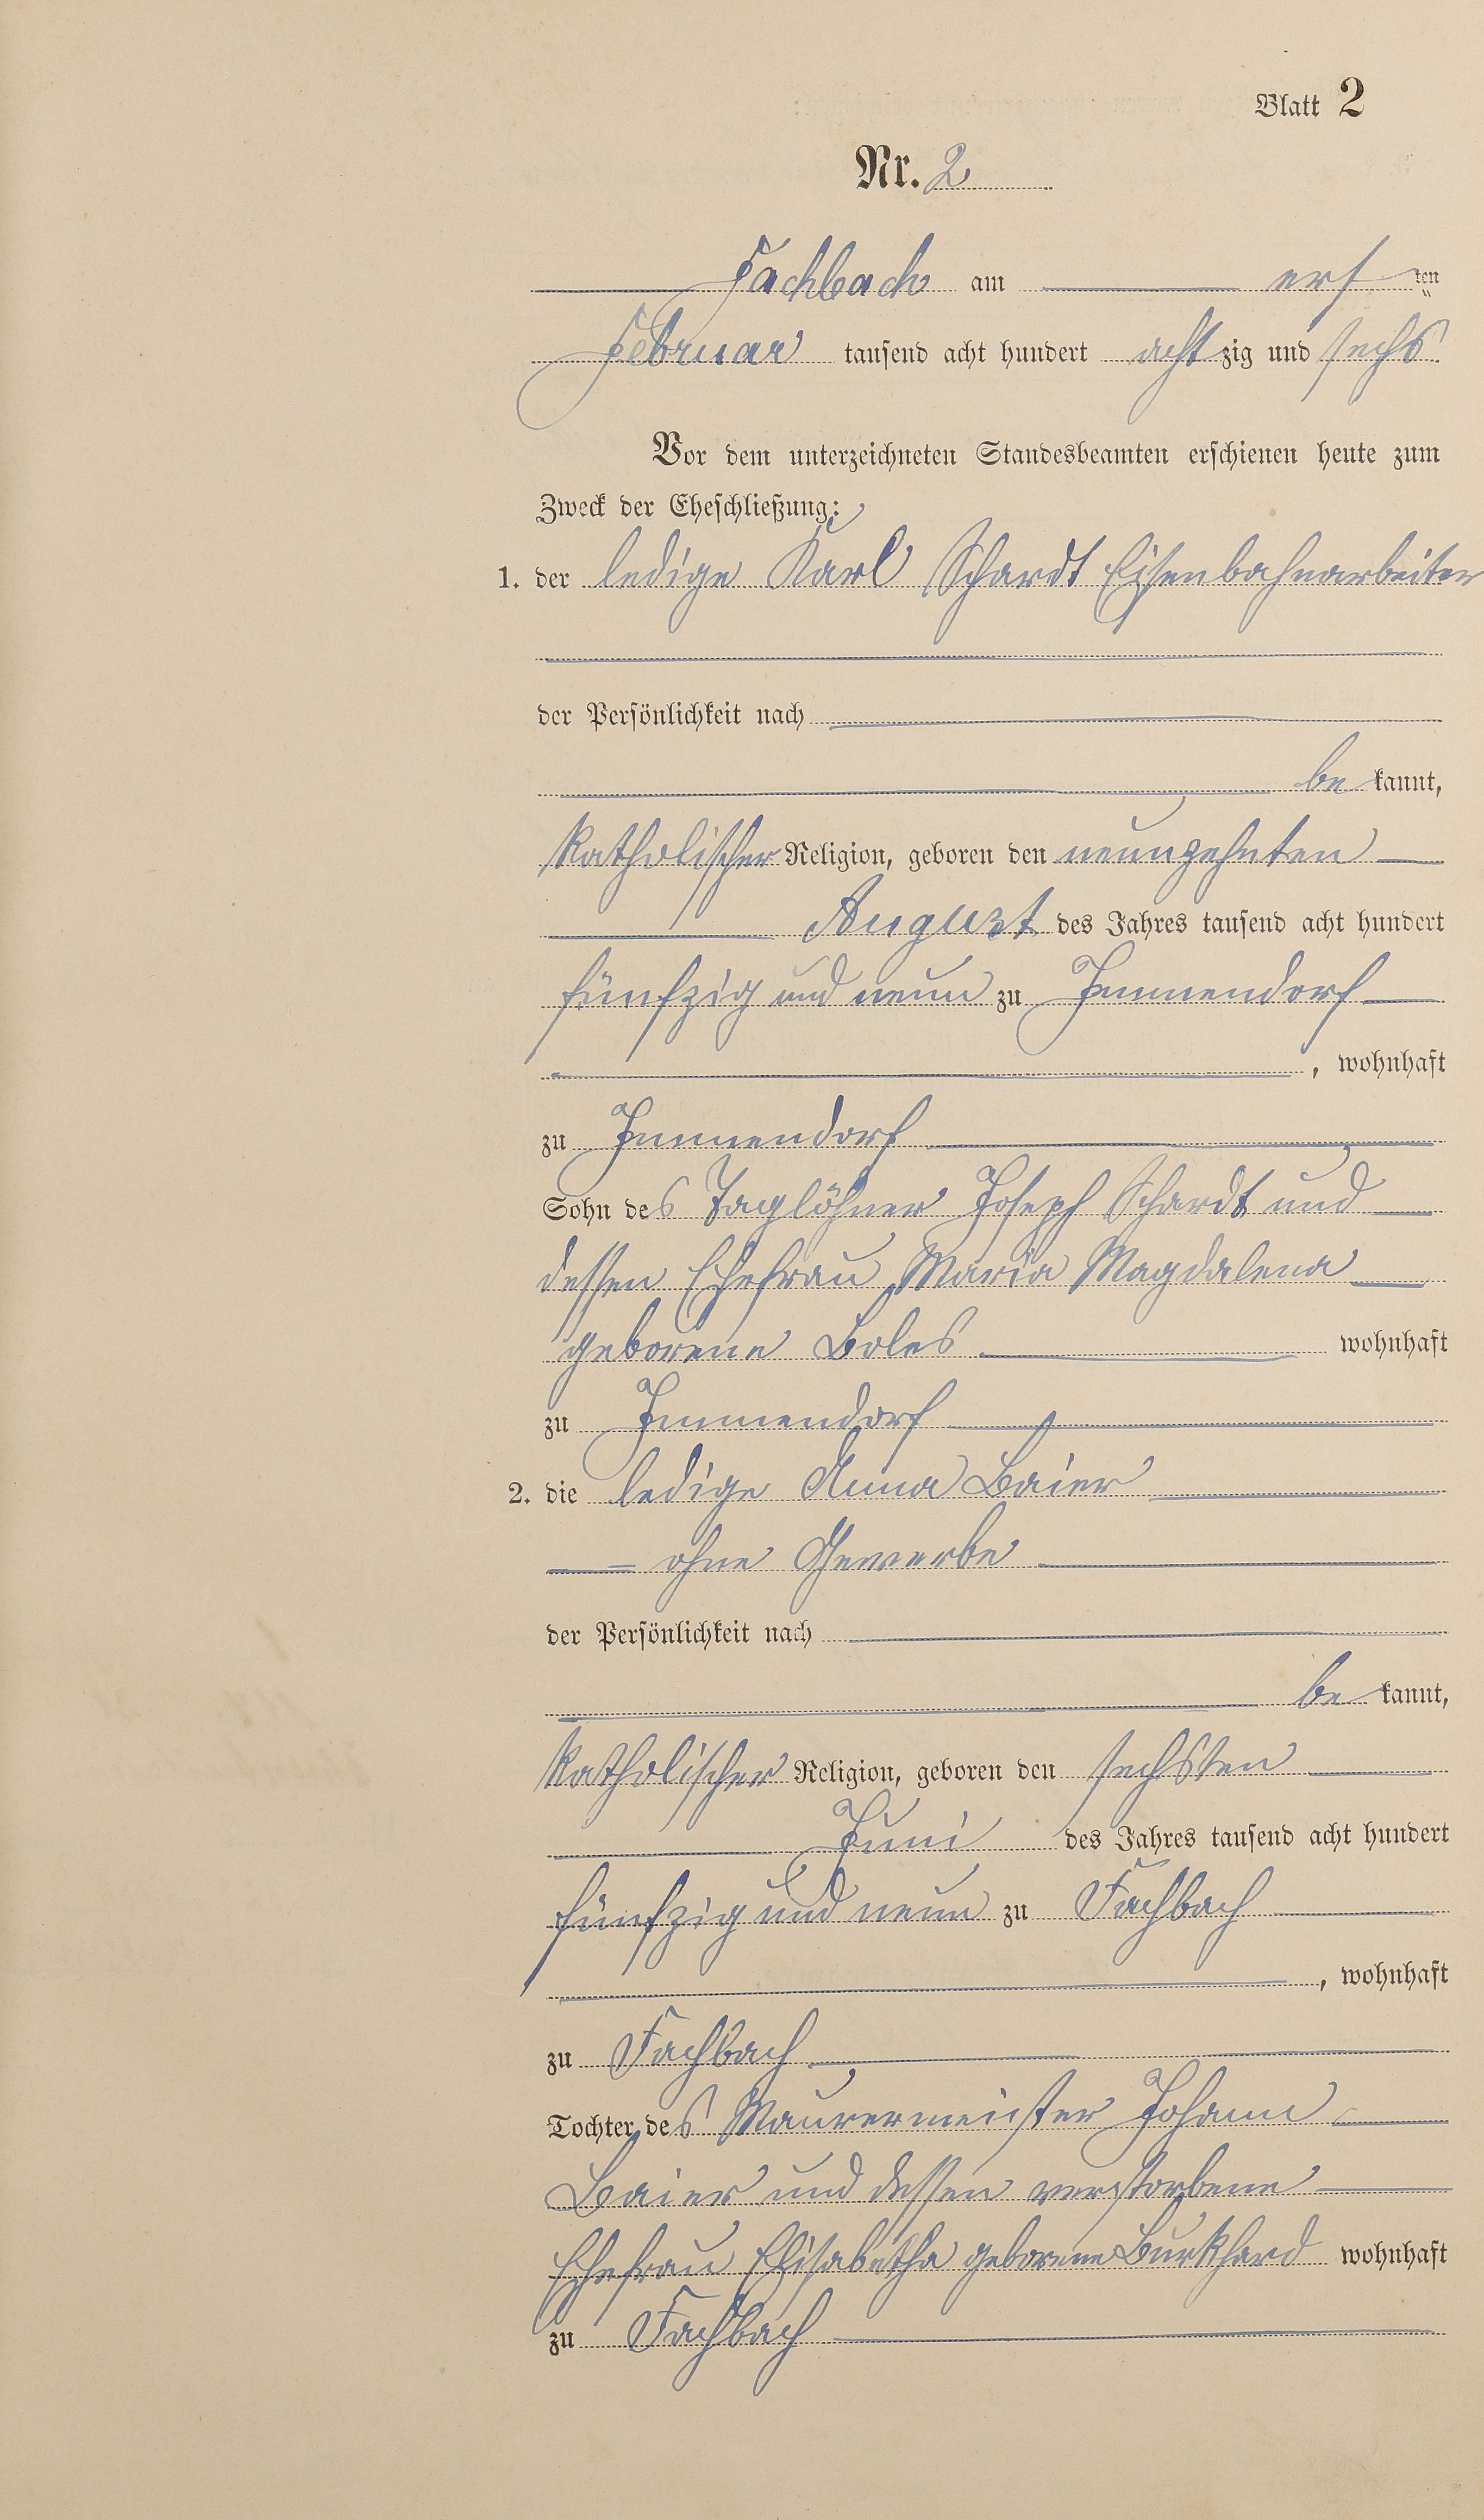 Blatt 2
Nr. 2
Fachbach am ersten
Februar tausend acht hundert achtzig und sechs
Vor dem unterzeichneten Standesbeamten erschienen heute zum
Zweck der Eheschließung:
1. der ledige Karl Schardt Eisenbahnarbeiter
der Persönlichkeit nach
be kannt,
katholischer Religion, geboren den neunzehnten
August des Jahres tausend acht hundert
fünfzig und neun zu Immendorf
, wohnhaft
zu Immendorf
Sohn des Taglöhner Joseph Schardt und
dessen Ehefrau Maria Magdalena
geborene Boles wohnhaft
zu Immendorf
2. die ledige Anna Baier
ohne Gewerbe
der Persönlichkeit nach
be kannt,
katholischer Religion, geboren den sechsten
Juni des Jahres tausend acht hundert
fünfzig und neun zu Fachbach
, wohnhaft
zu Fachbach
Tochter des Maurermeister Johann
Baier und dessen verstorbene
Ehefrau Elisabetha geborene Burkhard wohnhaft
zu Fachbach